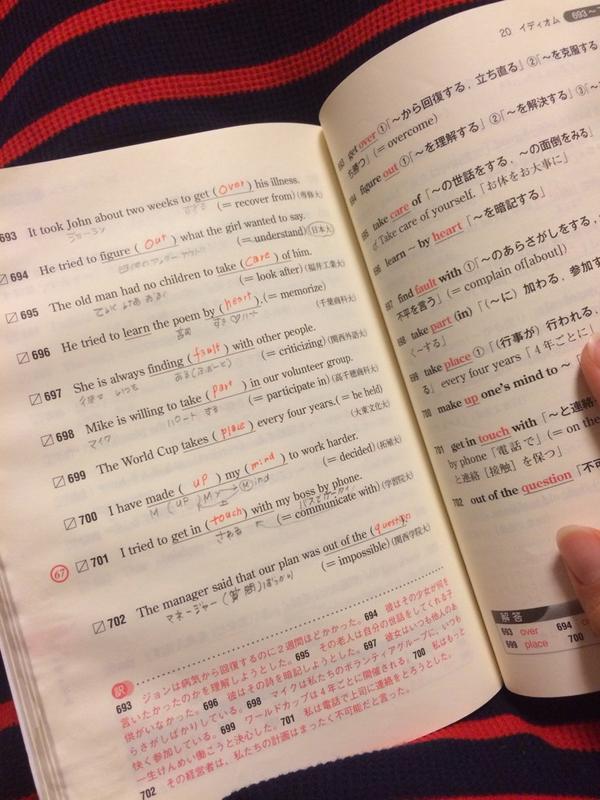 693 It took John about two weeks to get ( over ) his illness.
ジョーン
(= recover from) (専修大)
694 He tried to figure ( out ) what the girl wanted to say.
(=understand) (日本大)
695 The old man had no children to take ( care ) of him.
(= look after) (福井工業大)
696 He tried to learn the poem by ( heart ). (= memorize)
(千葉商科大)
697 She is always finding ( fault ) with other people.
(= criticizing) (関西外語大)
698 Mike is willing to take ( part ) in our volunteer group.
マイク
(= participate in) (高千穂商科大)
699 The World Cup takes ( place ) every four years. (= be held)
(大東文化大)
700 I have made ( up ) my ( mind ) to work harder.
M (UP) My Mind
(= decided) (拓殖大)
67
701 I tried to get in ( touch ) with my boss by phone.
される
(= communicate with) (学習院大)
702 The manager said that our plan was out of the ( question ).
マネージャー (質問)ばっかり
(= impossible) (関西学院大)
訳
693 ジョンは病気から回復するのに2週間ほどかかった。 694 彼はその少女が何を
言いたかったのかを理解しようとした。 695 その老人は自分の世話をしてくれる子
供がいなかった。 696 彼はその詩を暗記しようとした。 697 彼女はいつも他人のあ
らさがしばかりしている。 698 マイクは私たちのボランティアグループに、いつも
快く参加している。 699 ワールドカップは4年ごとに開催される。 700 私はもっと
一生けんめい働こうと決心した。 701 私は電話で上司に連絡をとろうとした。
702 その経営者は、私たちの計画はまったく不可能だと言った。
20 イディオム 693〜
get over ①「〜から回復する，立ち直る」 ②「〜を克服する
(= overcome)
figure out ①「〜を理解する」 ②「〜を解決する」 ③
take care of 「〜の世話をする，〜の面倒をみる」
Take care of yourself. 「お体をお大事に」
learn ~ by heart 「〜を暗記する」
find fault with ①「〜のあらさがしをする，
不平を言う」 (= complain of[about])
take part (in) 「(〜に) 加わる，参加す
699 take place ①「(行事が) 行われる，
る」 every four years 「4年ごとに」
700 make up one's mind to 〜
701 get in touch with 「〜と連絡
by phone 「電話で」 (= on the
と連絡 [接触] を保つ」
702 out of the question 「不
解答
693 over 694
699 place 700